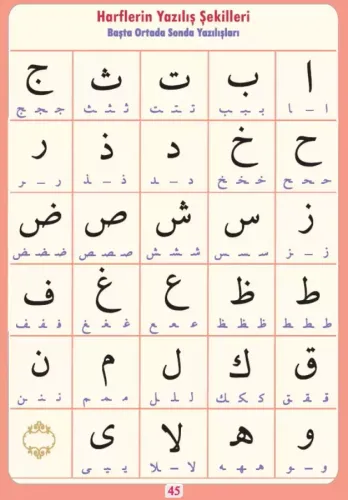 Harflerin Yazılış Şekilleri
Başta Ortada Sonda Yazılışları
ا ب ت ث ج
ا – ا بـ ـبـ ـب تـ ـتـ ـت ثـ ـثـ ـث جـ ـجـ ـج
ح خ د ذ ر
حـ ـحـ ـح خـ ـخـ ـخ د – ـد ذ – ـذ ر – ـر
ز س ش ص ض
ز – ـز سـ ـسـ ـس شـ ـشـ ـش صـ ـصـ ـص ضـ ـضـ ـض
ط ظ ع غ ف
طـ ـطـ ـط ظـ ـظـ ـظ عـ ـعـ ـع غـ ـغـ ـغ فـ ـفـ ـف
ق ك ل م ن
قـ ـقـ ـق كـ ـكـ ـك لـ ـلـ ـل مـ ـمـ ـم نـ ـنـ ـن
و هـ لا ى
و – ـو هـ ـهـ ـه لا – ـلا يـ ـيـ ـى
45